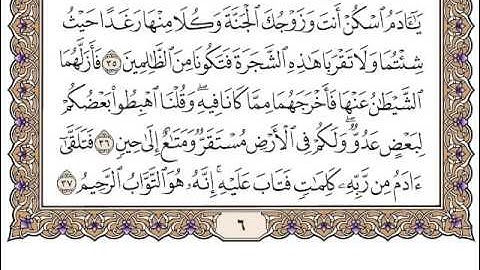 يَـَٔادَمُ ٱسْكُنْ أَنتَ وَزَوْجُكَ ٱلْجَنَّةَ وَكُلَا مِنْهَا رَغَدًا حَيْثُ
شِئْتُمَا وَلَا تَقْرَبَا هَٰذِهِ ٱلشَّجَرَةَ فَتَكُونَا مِنَ ٱلظَّٰلِمِينَ ٣٥ فَأَزَلَّهُمَا
ٱلشَّيْطَٰنُ عَنْهَا فَأَخْرَجَهُمَا مِمَّا كَانَا فِيهِ ۖ وَقُلْنَا ٱهْبِطُوا۟ بَعْضُكُمْ
لِبَعْضٍ عَدُوٌّ ۖ وَلَكُمْ فِى ٱلْأَرْضِ مُسْتَقَرٌّ وَمَتَٰعٌ إِلَىٰ حِينٍ ٣٦ فَتَلَقَّىٰٓ
ءَادَمُ مِن رَّبِّهِۦ كَلِمَٰتٍ فَتَابَ عَلَيْهِ ۚ إِنَّهُۥ هُوَ ٱلتَّوَّابُ ٱلرَّحِيمُ ٣٧
٦